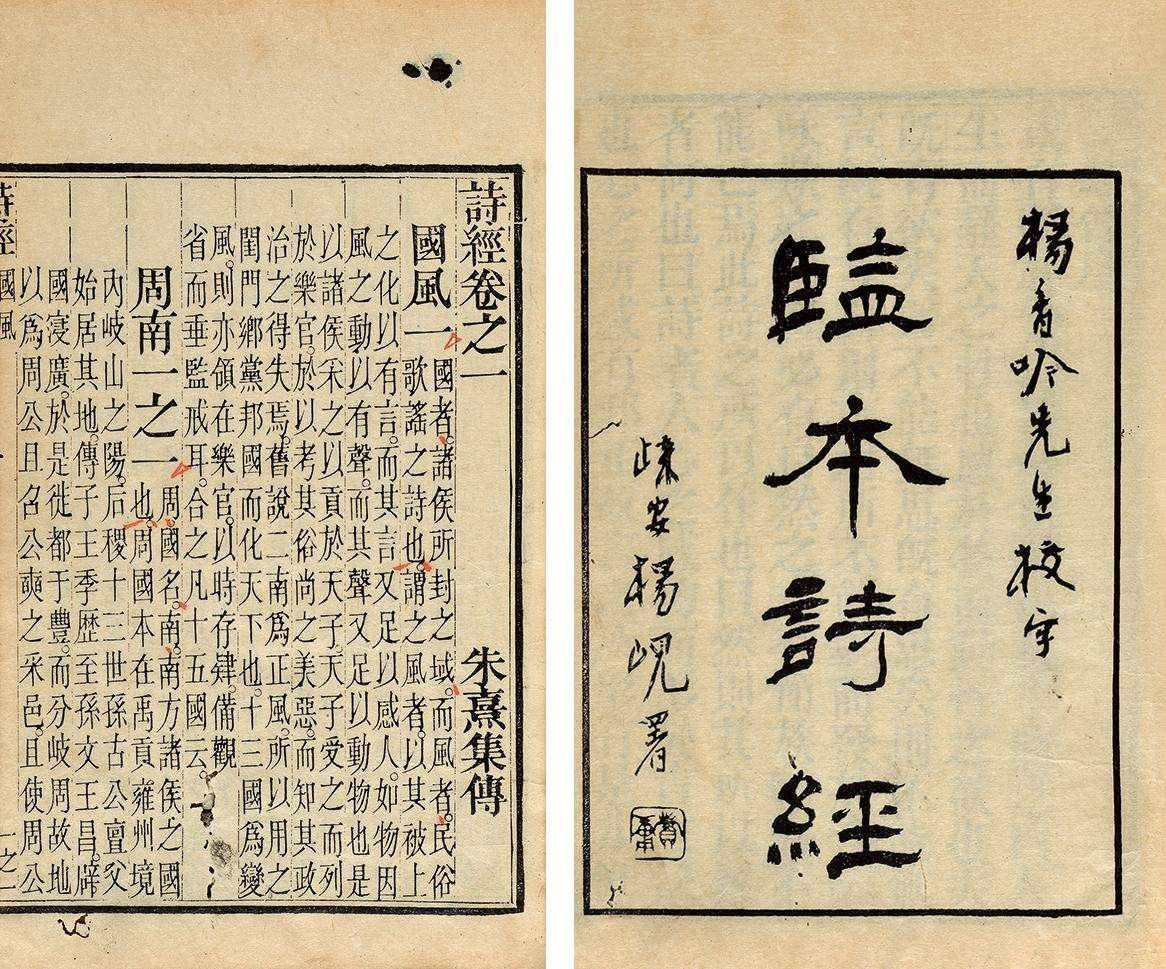 楊香吟先生校字
監本詩經
歸安楊峴署
詩經卷之一 朱熹集傳
國風一 國者。諸侯所封之域。而風者。民俗
歌謠之詩也。謂之風者。以其被上
之化以有言。而其言又足以感人。如物因
風之動以有聲。而其聲又足以動物也。是
以諸侯采之以貢於天子。天子受之而列
於樂官。於以考其俗尚之美惡。而知其政
治之得失焉。舊說二南爲正風。所以用之
閨門鄉黨邦國而化天下也。十三國爲變
風。則亦領在樂官。以時存肄。備觀
省而垂監戒耳。合之凡十五國云。
周南一之一 周。國名。南。南方諸侯之國
也。周國本在禹貢雍州境
內岐山之陽。后稷十三世孫古公亶父
始居其地。傳子王季歷。至孫文王昌。辟
國寖廣。於是徙都于豐。而分岐周故地
以爲周公旦召公奭之采邑。且使周公
詩經 國風